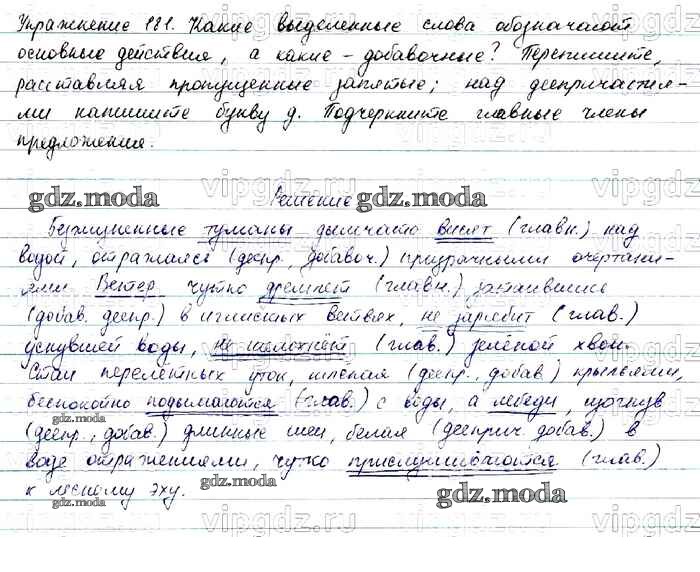 Упражнение 181. Какие выделенные слова обозначают
основные действия, а какие - добавочные? Перепишите,
расставляя пропущенные запятые; над деепричастия-
ми напишите букву д. Подчеркните главные члены
предложения.
gdz.moda Решение gdz.moda
Безжизненные туманы дымчато висят (главн.) над
водой, отражаясь (деепр., добавоч.) призрачными очертани-
ями. Ветер чутко дремлет (главн.) затаившись
(добав. деепр.) в иглистых ветвях, не зарябит (глав.)
уснувшей воды, не шелохнёт (глав.) зелёной хвои.
Стаи перелётных уток, шлёпая (деепр., добав.) крыльями,
беспокойно подымаются (глав.) с воды, а лебеди, изогнув
(деепр., добав.) длинные шеи, белая (дееприч. добав.) в
воде отражениями, чутко прислушиваются (глав.)
к лесному эху.
gdz.moda
gdz.moda
gdz.moda
gdz.moda
vipgdz.ru